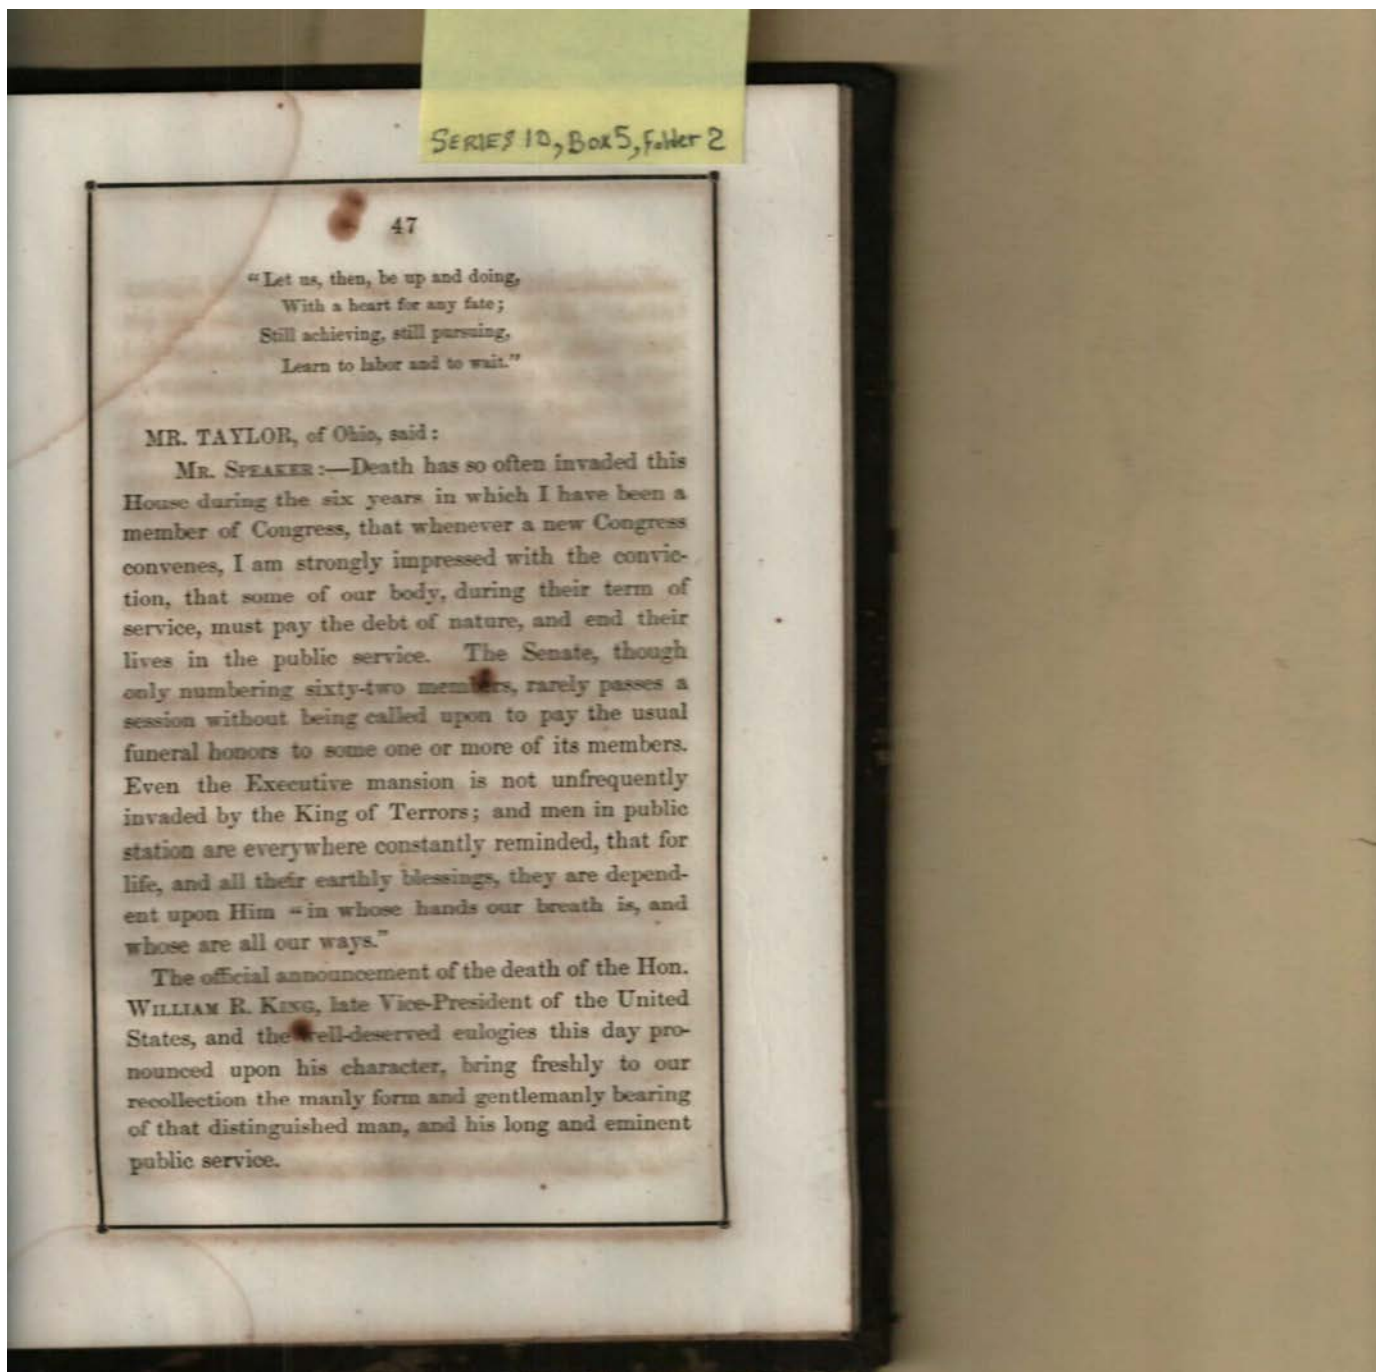 SERIES 10, Box 5, Folder 2
47
"Let us, then, be up and doing,
With a heart for any fate;
Still achieving, still pursuing,
Learn to labor and to wait."
MR. TAYLOR, of Ohio, said:
MR. SPEAKER:—Death has so often invaded this
House during the six years in which I have been a
member of Congress, that whenever a new Congress
convenes, I am strongly impressed with the convic-
tion, that some of our body, during their term of
service, must pay the debt of nature, and end their
lives in the public service. The Senate, though
only numbering sixty-two members, rarely passes a
session without being called upon to pay the usual
funeral honors to some one or more of its members.
Even the Executive mansion is not unfrequently
invaded by the King of Terrors; and men in public
station are everywhere constantly reminded, that for
life, and all their earthly blessings, they are depend-
ent upon Him "in whose hands our breath is, and
whose are all our ways."
The official announcement of the death of the Hon.
WILLIAM R. KING, late Vice-President of the United
States, and the well-deserved eulogies this day pro-
nounced upon his character, bring freshly to our
recollection the manly form and gentlemanly bearing
of that distinguished man, and his long and eminent
public service.